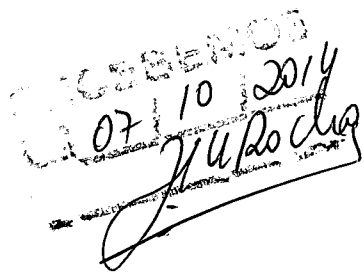 RECEBEMOS
07 10 2014